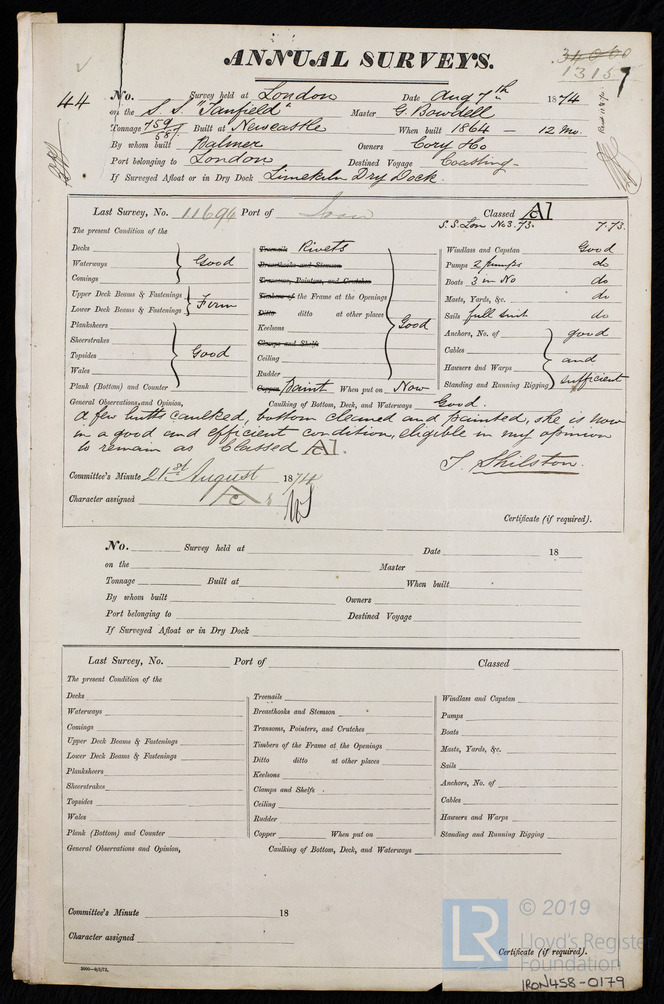 ANNUAL SURVEYS.
34060
13157
44 No. Survey held at London Date Aug 7th 1874
on the S.S. "Tanfield" Master G. Bowdell
Tonnage 759 Built at Newcastle When built 1864 - 12 Mo.
By whom built Palmer Owners Cory & Co
Port belonging to London Destined Voyage Coasting
If Surveyed Afloat or in Dry Dock Limekiln Dry Dock
Last Survey, No. 11694 Port of Classed A1
S.S. Lon No3.73. 7.73.
The present Condition of the
Decks
Waterways Good
Comings
Upper Deck Beams & Fastenings
Lower Deck Beams & Fastenings Firm
Planksheers
Sheerstrakes
Topsides Good
Wales
Plank (Bottom) and Counter
Treenails Rivets
Breasthooks and Stemson
Transoms, Pointers, and Crutches
Timbers of the Frame at the Openings
Ditto ditto at other places
Keelsons Good
Clamps and Shelfs
Ceiling
Rudder
Copper Paint When put on Now
Windlass and Capstan Good
Pumps 2 pumps do
Boats 3 in No do
Masts, Yards, &c. do
Sails full suit do
Anchors, No. of good
Cables and
Hawsers and Warps
Standing and Running Rigging sufficient
General Observations, and Opinion, Caulking of Bottom, Deck, and Waterways Good.
A few butts caulked, bottom cleaned and painted, she is now
in a good and efficient condition, eligible in my opinion
to remain as Classed A1.
T. Shilston.
Committee's Minute 21st August 1874
Character assigned
Certificate (if required).
No. Survey held at Date 18
on the Master
Tonnage Built at When built
By whom built Owners
Port belonging to Destined Voyage
If Surveyed Afloat or in Dry Dock
Last Survey, No. Port of Classed
The present Condition of the
Decks
Waterways
Comings
Upper Deck Beams & Fastenings
Lower Deck Beams & Fastenings
Planksheers
Sheerstrakes
Topsides
Wales
Plank (Bottom) and Counter
Treenails
Breasthooks and Stemson
Transoms, Pointers, and Crutches
Timbers of the Frame at the Openings
Ditto ditto at other places
Keelsons
Clamps and Shelfs
Ceiling
Rudder
Copper When put on
Windlass and Capstan
Pumps
Boats
Masts, Yards, &c.
Sails
Anchors, No. of
Cables
Hawsers and Warps
Standing and Running Rigging
General Observations and Opinion, Caulking of Bottom, Deck, and Waterways
Committee's Minute 18
Character assigned
Certificate (if required).
LR © 2019
Lloyd's Register
Foundation
IRON458-0179